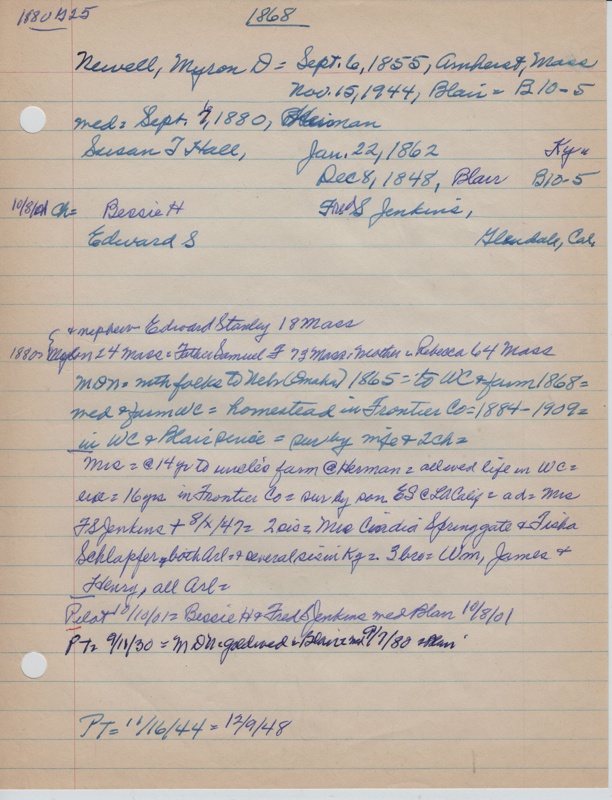 1880 B25 1868
Newell, Myron D = Sept. 6, 1855, Amherst, Mass
Nov. 15, 1944, Blair = B10-5
med = Sept. 7, 1880, Herman
Susan T Hall, Jan. 22, 1862 Ky =
Dec 8, 1848, Blair B10-5
10/8/01 Ch = Bessie H Fred S Jenkins,
Edward S Glendale, Cal.
& nephew - Edward Stanley 18 Mass
1880 = Myron 24 Mass = Father Samuel F 73 Mass = Mother = Rebecca 64 Mass
MDN = with folks to Nebr (Omaha) 1865 = to WC & farm 1868 =
med & farm WC = homestead in Frontier Co = 1884-1909 =
in WC & Blair since = sur by wife & 2ch =
Mrs = @ 14 yr to uncle's farm @ Herman = all wed life in WC =
exc = 16 yrs in Frontier Co = sur by son ES @ LA Calif = ad = Mrs
FS Jenkins + 8/x/47 = 2 sis = Mrs Springgate & Tisha
Schlapfer, both Arl = & several sis in Ky = 3 bro = Wm, James &
Henry, all Arl =
Pilot 10/10/01 = Bessie H & Fred S Jenkins med Blair 10/8/01
PT = 9/11/30 = MDN = gold wed = Blair = med 9/7/80 =
PT = 11/16/44 = 12/9/48